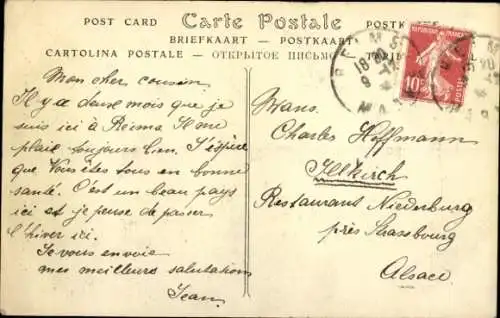 POST CARD Carte Postale POSTK
BRIEFKAART - POSTKAART
CARTOLINA POSTALE - ОТКРЫТОЕ ПИСЬМО
REPUBLIQUE FRANÇAISE
10c
POSTES
18 30
9
Mon cher cousin
Il y a deux mois que je
suis ici à Reims Il me
plaie toujours bien. J'espère
que Vous êtes tous en bonne
santé. C'est un beau pays
ici et je pense de passer
l'hiver ici.
Je vous envoie
mes meilleurs salutations
Jean
Mons.
Charles Hoffmann
Illkirch
Restaurant Niederburg
près Strassbourg
Alsace